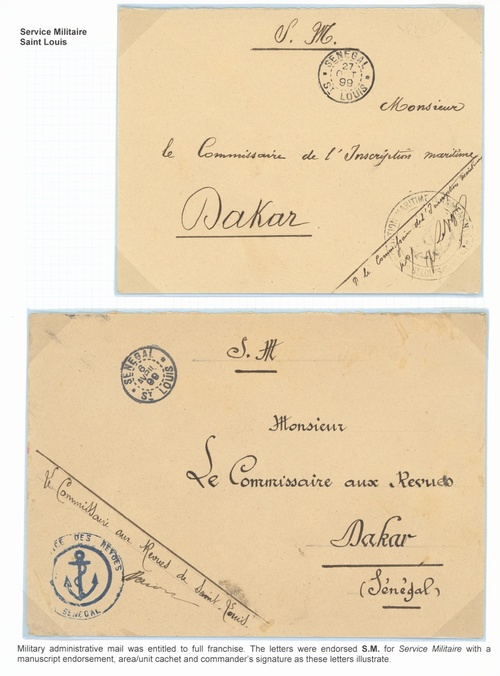 Service Militaire
Saint Louis
S. M.
SENEGAL
27
OCT
99
ST LOUIS
Monsieur
le Commissaire de l'Inscription maritime
Dakar
P. le Commissaire de l'Inscription marit
S. M
SENEGAL
AVRIL
99
ST LOUIS
Monsieur
Le Commissaire aux Revues
Dakar
(Sénégal)
Le Commissaire aux Revues de Saint-Louis
DES REVUES
SENEGAL
Military administrative mail was entitled to full franchise. The letters were endorsed S.M. for Service Militaire with a
manuscript endorsement, area/unit cachet and commander's signature as these letters illustrate.